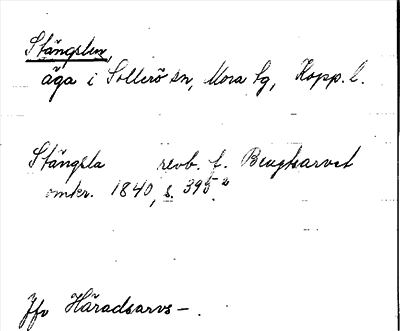 Stängslen,
äga i Sollerö sn, Mora tg, Kopp. l.
Stängsla revb. f. Bengtsarvet
omkr. 1840, s. 395
Jfr Häradsarvs- .